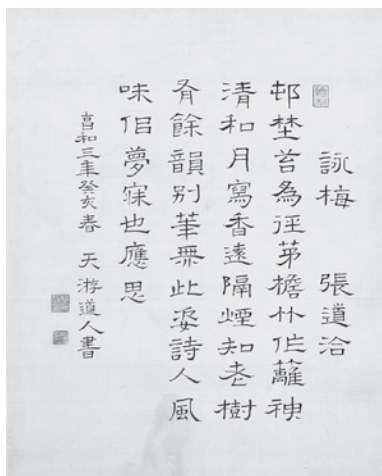 詠梅 張道洽
邨埜苔為徑茅檐竹作籬神
清和月寫香遠隔煙知老樹
有餘韻別華無此姿詩人風
味佀夢寐也應思
亯和三年癸亥春 天游道人書